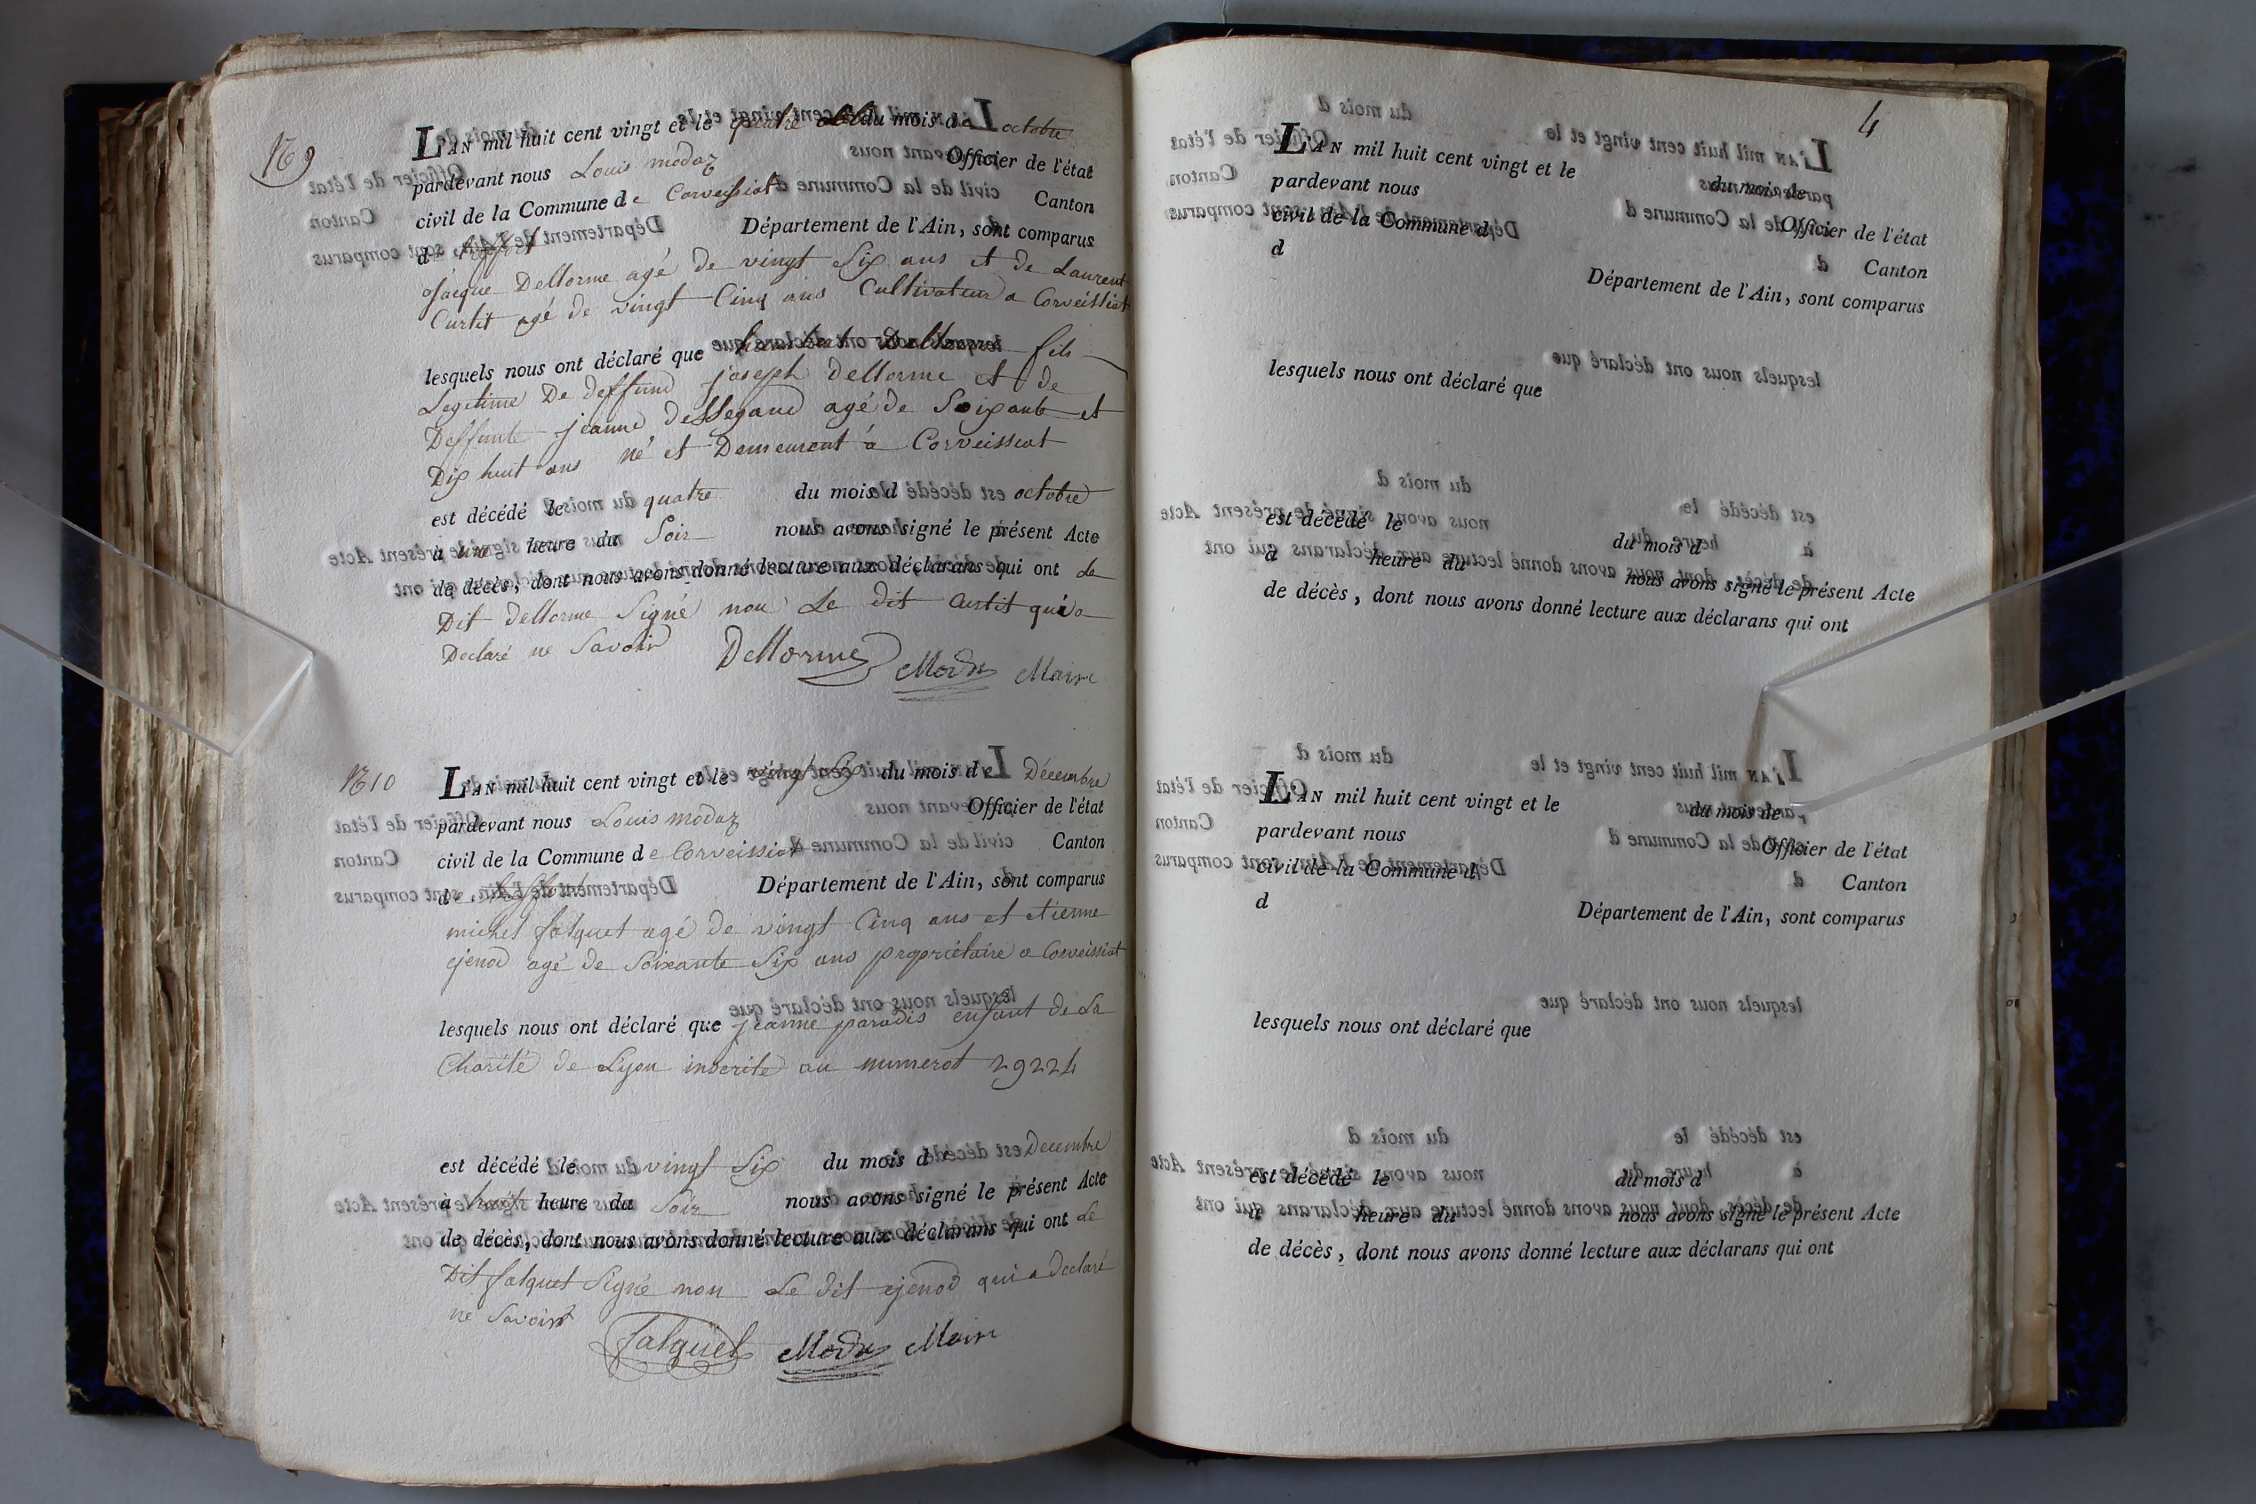 N 9
L'AN mil huit cent vingt et le quatre du mois d octobre
pardevant nous Louis modaz Officier de l'état
civil de la Commune de Corveissiat Canton
d Département de l'Ain, sont comparus
jacque Dellorme agé de vingt Six ans et de Laurent
Curtit agé de vingt Cinq ans Cultivateur a Corveissiat
lesquels nous ont déclaré que Dellorme fils
Legitime De deffund joseph dellorme et de
Deffunte jeanne agé de Soixante et
Dix huit ans né et Demeurent a Corveissiat
est décédé le quatre du mois d octobre
à une heure du Soir nous avons signé le présent Acte
de décès, dont nous avons donné lecture aux déclarans qui ont Le
Dit dellorme Signé non Le dit Curtit qui a
Declaré ne Savoir
Dellorme Modaz Maire
N 10
L'AN mil huit cent vingt et le vingt Six du mois de Décembre
pardevant nous Louis modaz Officier de l'état
civil de la Commune de Corveissiat Canton
de Département de l'Ain, sont comparus
michel falquet agé de vingt Cinq ans et etienne
ejenod agé de Soixante Six ans propriétaire a Corveissiat
lesquels nous ont déclaré que jeanne paradis enfant de La
Charité de Lyon inscrite au numerot 29224
est décédé le vingt Six du mois de Decembre
à huit heure du Soir nous avons signé le présent Acte
de décès, dont nous avons donné lecture aux déclarans qui ont Le
Dit falquet Signé non Le dit ejenod qui a declaré
ne Savoir
Falquet Modaz Maire
4
L'AN mil huit cent vingt et le du mois de
pardevant nous Officier de l'état
civil de la Commune d Canton
d Département de l'Ain, sont comparus
lesquels nous ont déclaré que
est décédé le du mois d
à heure du nous avons signé le présent Acte
de décès, dont nous avons donné lecture aux déclarans qui ont
L'AN mil huit cent vingt et le du mois de
pardevant nous Officier de l'état
civil de la Commune d Canton
d Département de l'Ain, sont comparus
lesquels nous ont déclaré que
est décédé le du mois d
à heure du nous avons signé le présent Acte
de décès, dont nous avons donné lecture aux déclarans qui ont